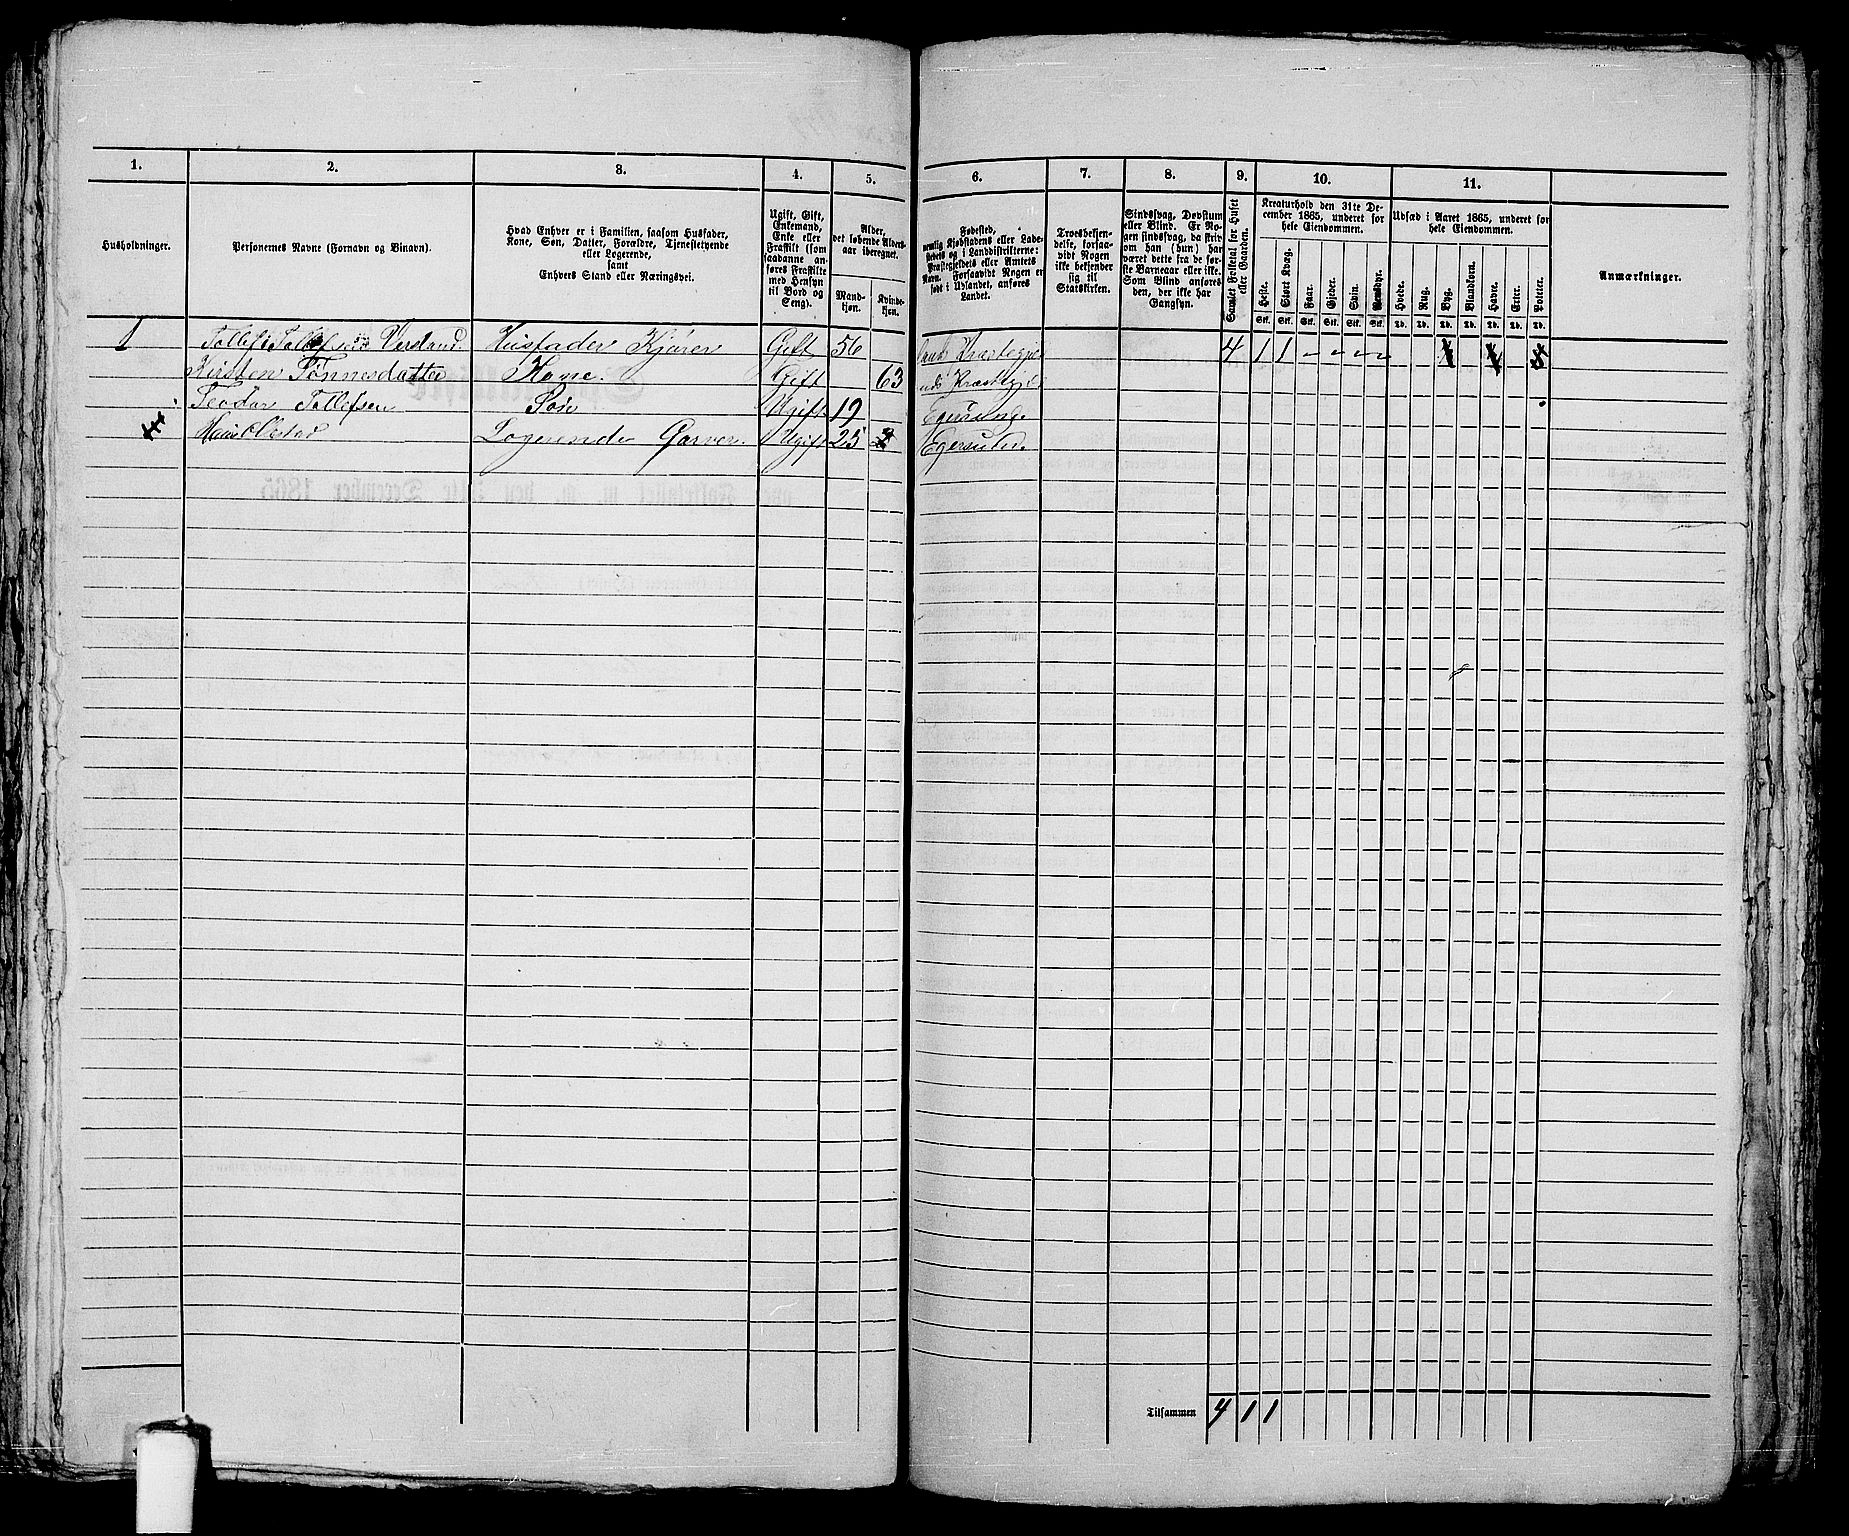 1. 2. 3. 4. 5. 6. 7. 8. 9. 10. 11.
Husholdninger.
Personernes Navne (Fornavn og Binavn).
Hvad Enhver er i Familien, saasom Husfader,
Kone, Søn, Datter, Forældre, Tjenestetyende
eller Logerende,
samt
Enhvers Stand eller Næringsvei.
Ugift, Gift,
Enkemand,
Enke eller
Fraskilt (som
saadanne an-
føres Fraskilte
med Hensyn
til Bord og
Seng).
Alder,
det løbende Alders-
aar iberegnet.
Mand-
kjøn.
Kvinde-
kjøn.
Fødested,
nemlig Kjøbstadens eller Lade-
stedets og i Landdistrikterne:
Præstegjeldets eller Amtets
Navn. Forsaavidt Nogen er
født i Udlandet, anføres
Landet.
Troesbekjen-
delse, forsaa-
vidt Nogen
ikke bekjender
sig til
Statskirken.
Sindssvag, Døvstum
eller Blind. Er No-
gen sindssvag, da skriv
om han (hun) har
været dette fra de før-
ste Barneaar eller ikke.
Som Blind anføres
den, der ikke har
Gangsyn.
Samlet Folketal for Huset
eller Gaarden.
Kreaturhold den 31te De-
cember 1865, underet for
hele Eiendommen.
Heste. Stort Kvæg. Faar. Gjeder. Svin. Rensdyr.
Stk. Stk. Stk. Stk. Stk. Stk.
Udsæd i Aaret 1865, underet for
hele Eiendommen.
Hvede. Rug. Byg. Blandkorn. Havre. Erter. Poteter.
Td. Td. Td. Td. Td. Td. Td.
Anmærkninger.
1 Tollef Tollefsen Husfader Kjører Gift 56 4 1 1
Kirsten Tønnesdatter Kone. Gift 63
Teodor Tollefsen Søn Ugift 19 Egersund
Logerende Garver. Ugift 25 Egersund.
Tilsammen 4 1 1